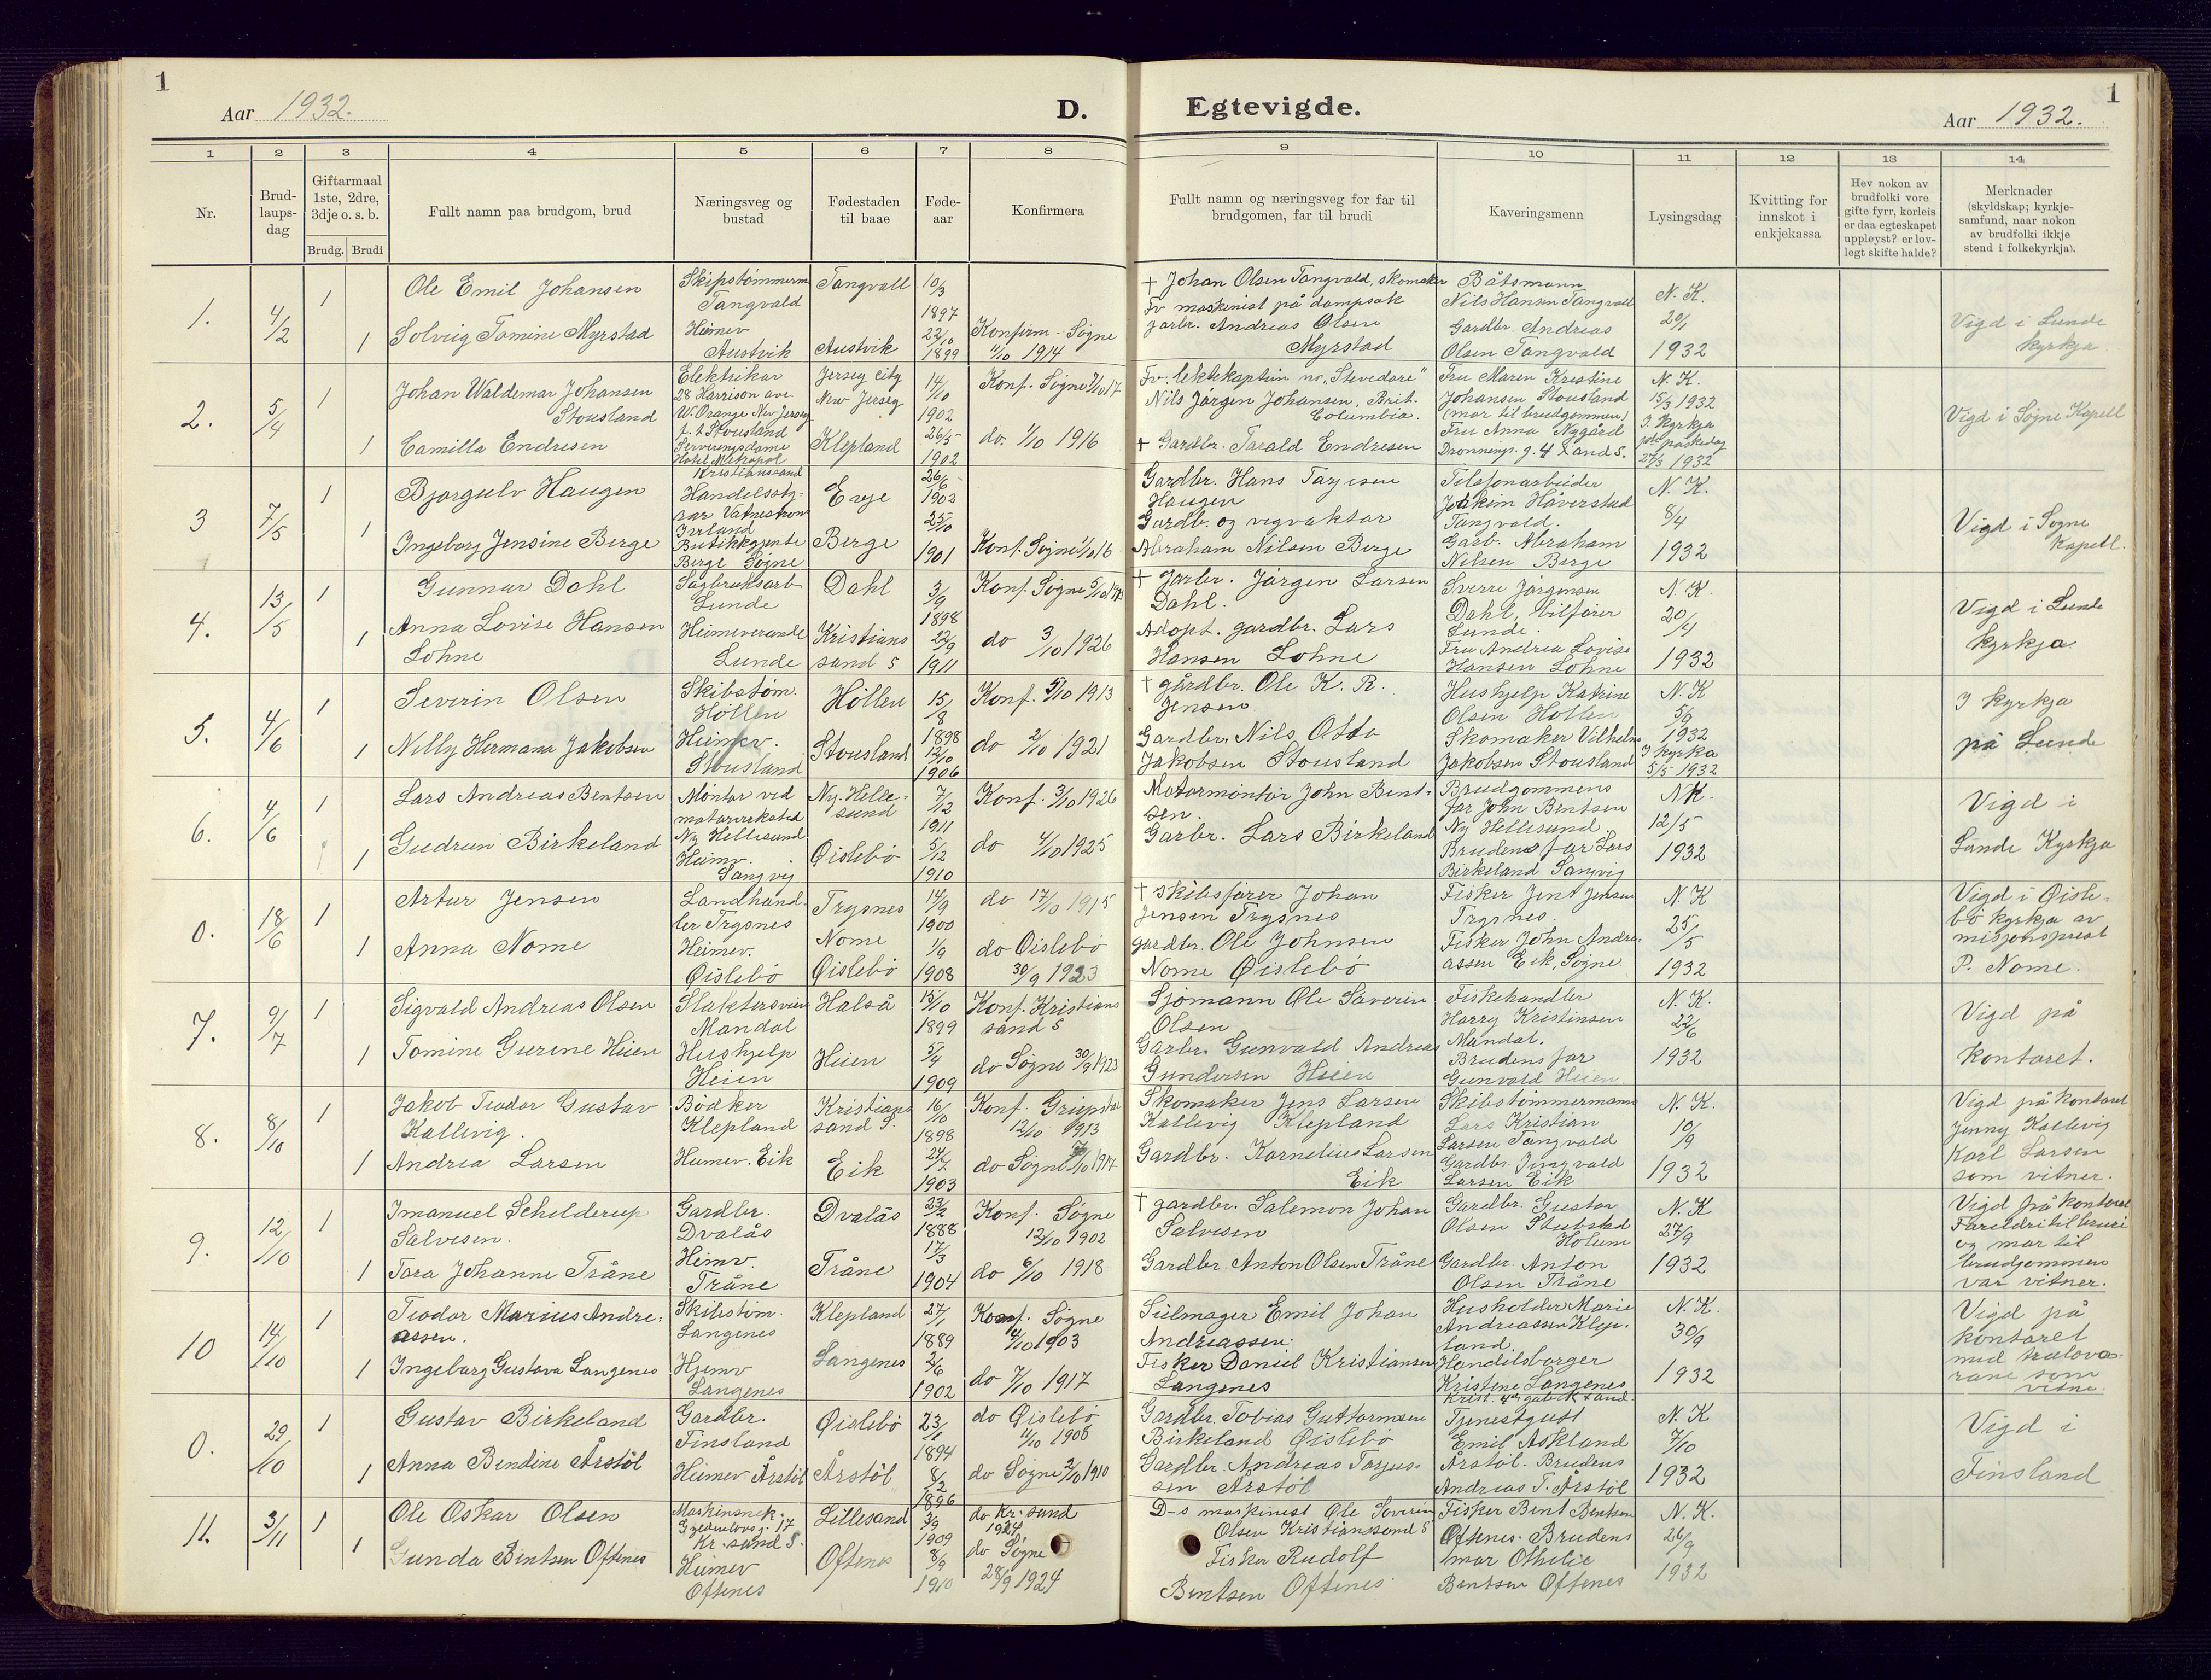 1
Aar 1932.
D. Egtevigde.
Aar 1932.
1
1 2 3 4 5 6 7 8 9 10 11 12 13 14
Nr.
Brud-
laups-
dag
Giftarmaal
1ste, 2dre,
3dje o. s. b.
Brudg. Brudi
Fullt namn paa brudgom, brud
Næringsveg og
bustad
Fødestaden
til baae
Føde-
aar
Konfirmera
Fullt namn og næringsveg for far til
brudgomen, far til brudi
Kaveringsmenn
Lysingsdag
Kvitting for
innskot i
enkjekassa
Hev nokon av
brudfolki vore
gifte fyrr, korleis
er daa egteskapet
uppløyst? er lov-
legt skifte halde?
Merknader
(skyldskap; kyrkje-
samfund, naar nokon
av brudfolki ikkje
stend i folkekyrkja).
1. 4/2 1 1
Ole Emil Johansen
Solveig Tomine Myrstad
Skipstømmerm
Tangvald
Heimev
Austvik
Tangvall
Austvik
10/3
1897
22/10
1899
Konfirm. Søgne
11/10 1914
+ Johan Olsen Tangvald, skomaker
Fv maskinist på dampsak
garbr. Andreas Olsen
Myrstad
Båtsmann
Nils Hansen Tangvald
Gardbr. Andreas
Olsen Tangvald
N. K.
20/1
1932
Vigd i Lunde
kyrkja
2. 5/4 1 1
Johan Waldemar Johansen
Stousland
Camilla Endresen
Elektrikar
28 Harrison ave
W. Orange New Jersey
f. t Stousland
Serveringsdame
Hotel Metropol
Kristiansand
Jersey City
New Jersey
Klepland
14/10
1902
26/5
1902
Konf. Søgne 7/10 17
do. 1/10 1916
Fv. lektekaptein no. "Stevedore"
Nils Jørgen Johansen, Brit.
Columbia.
+ Gardbr. Tarald Endresen
Fru Maren Kristine
Johansen Stousland
(mor til brudgommen)
Fru Anna Nygård
Dronnings. g. 4 Xand S.
N. K.
15/3 1932
I Kyrkja
påskedag
27/3 1932
Vigd i Søgne Kapell
3 7/5 1 1
Bjørgulv Haugen
Ingeborg Jensine Berge
Handelssty-
rar Vatnestrøm
Iveland
Butikkgjente
Berge Søgne
Evje
Berge
26/6
1903
25/10
1901
Konf. Søgne 1/10 16
Gardbr. Hans Tarjesen
Haugen
Gardb. og vegvaktar
Abraham Nilsen Berge
Telefonarbeider
Joakim Håverstad
Tangvald.
Garb. Abraham
Nilsen Berge
N. K.
8/4
1932
Vigd i Søgne
Kapell.
4. 13/5 1 1
Gunnar Dahl
Anna Lovise Hansen
Lohne
Sagbruksarb
Lunde
Heimeverande
Lunde
Dahl
Kristians
sand S
3/9
1898
22/9
1911
Konf. Søgne
do 3/10 1926
+ Garbr. Jørgen Larsen
Dahl.
Adopt. gardbr. Lars
Hansen Lohne
Sverre Jørgensen
Dahl, bilfører
Lunde.
Fru Andrea Lovise
Hansen Lohne
N. K.
20/4
1932
Vigd i Lunde
kyrkja
5. 4/6 1 1
Severin Olsen
Nelly Hermana Jakobsen
Skibstøm.
Høllen
Heimev.
Stousland
Høllen
Stousland
15/8
1898
12/10
1906
Konf. 5/10 1913
do 2/10 1921
+ gårdbr. Ole K. R.
Jensen.
Gardbr. Nils Otto
Jakobsen Stousland
Hushjelp Katrine
Olsen Høllen
Skomaker Vilhelm
Jakobsen Stousland
N. K
1932
I kyrka
5/5 1932
I kyrkja
på Lunde
6. 4/6 1 1
Lars Andreas Bentsen
Gudrun Birkeland
Montør ved
motorverksted
Ny Hellesund
Heimv.
Langvig
Ny-Helle-
sund
Øislebø
7/12
1911
5/12
1910
Konf. 3/10 1926
do 4/10 1925
Motormontør John Bent-
sen.
Garbr. Lars Birkeland
Brudgommens
far John Bentsen
Ny Hellesund.
Brudens far Lars
Birkeland Langvig
N K.
12/5
1932
Vigd i
Lunde Kyrkja
0. 18/6 1 1
Artur Jensen
Anna Nome
Landhand-
ler Trysnes
Heimev.
Øislebø
Trysnes
Nome
Øislebø
14/9
1900
1/9
1908
do 17/10 1915
do Øislebø
30/9 1923
+ Skibsfører Johan
Jensen Trysnes
gardbr. Ole Johnsen
Nome Øislebø
Fisker Jent Jensen
Trysnes.
Fisker John Andre-
assen Eik, Søgne
N. K
25/5
1932
Vigd i Øisle-
bø kyrkja av
misjonsprest
P. Nome.
7. 9/7 1 1
Sigvald Andreas Olsen
Tomine Gurene Heien
Slaktersvein
Mandal
Hushjelp
Heien
Halså
Heien
15/10
1899
5/4
1909
Konf. Kristians
sand S
do Søgne 30/9 1923
Sjømann Ole Saverin
Olsen
Garbr. Gunvald Andreas
Gundersen Heien
Fiskehandler
Harry Kristinsen
Mandal.
Brudens far
Gunvald Heien
N. K.
22/6
1932
Vigd på
kontoret.
8. 8/10 1 1
Jakob Teodor Gustav
Kallevig.
Andrea Larsen
Bødker
Klepland
Heimev. Eik
Kristians
sand S.
Eik
16/10
1898
24/7
1903
Konf. Gripstad
12/10 1913
do Søgne 7/10 1917
Skomaker Jens Larsen
Kallevig Klepland
Gardbr. Kornelius Larsen
Eik
Skibstømmermann
Lars Kristian
Larsen Tangvald
Gardbr. Jingvald
Larsen Eik
N. K.
10/9
1932
Vigd på kontoret
Jenny Kallevig
Karl Larsen
som vitner.
9. 12/10 1 1
Imanuel Schelderup
Salvesen.
Tora Johanne Tråne
Gardbr.
Dvalås
Heimv.
Tråne
Dvalås
Tråne
23/2
1888
17/3
1904
Konf. Søgne
12/10 1902
do 6/10 1918
+ gardbr. Salemon Johan
Salvesen
Gardbr. Anton Olsen Tråne
Gardbr. Gustav
Olsen Stubstad
Holum
Gardbr. Anton
Olsen Tråne
N. K
27/9
1932
Vigd på kontoret
Foreldri til brudi
og mor til
brudgommen
var vitner.
10 14/10 1 1
Teodor Marius Andre-
assen.
Ingeborg Gustava Langenes
Skibstøm.
Langenes
Hjemv
Langenes
Klepland
Langenes
27/1
1889
2/6
1902
Konf. Søgne
4/10 1903
do 7/10 1917
Seilmager Emil Johan
Andreassen.
Fisker Daniel Kristiansen
Langenes
Husholder Marie
Andreassen Klep-
land.
Handelsborger
Kristene Langenes
N. K.
30/9
1932
Vigd på
kontoret
med trulova-
rane som
vitne.
0. 29/10 1 1
Gustav Birkeland
Anna Bendine Årstøl
Gardbr.
Finsland
Heimev Årstøl
Øislebø
Årstøl
23/1
1894
8/2
1896
do Øislebø
11/10 1908
do Søgne 2/10 1910
Gardbr. Tobias Guttormsen
Birkeland Øislebø
Gardbr. Andreas Tarjus-
sen Årstøl
Tjenestgutt
Emil Askland
Årstøl. Brudens
Andreas T. Årstøl
N. K
7/10
1932
Vigd i
Finsland
11. 3/11 1 1
Ole Oskar Olsen
Gunda Bentsen Oftenes
Maskinsnek.
Kr. sand S.
Heimev
Oftenes
Lillesand
Oftenes
3/9
1909
8/9
1910
do Kr. sand
1924
do Søgne
28/9 1924
D-s maskinist Ole Soverin
Olsen Kristianssand S
Fisker Rudolf
Bentsen Oftenes
Fisker Bent Bentsen
Oftenes. Brudens
mor Othelie
Bentsen Oftenes
N. K.
26/9
1932